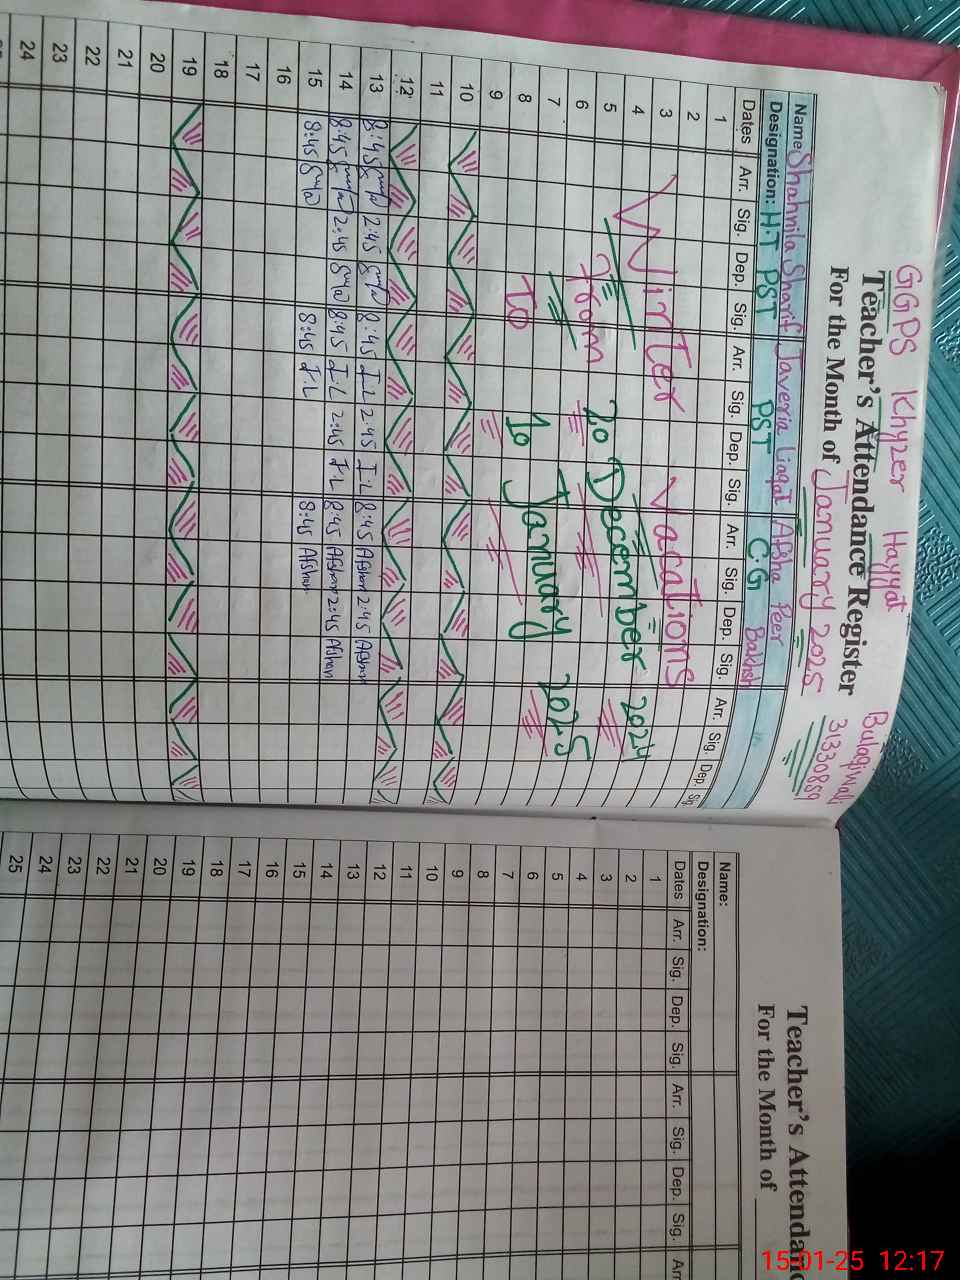 GGPS Khyzer Hayyat Bulaqiwali
Teacher's Attendance Register 31330859
For the Month of January 2025
Name: Shahnila Sharif Javeria Liaqat Afsha Peer Bakhsh
Designation: H.T PST PST C.G
Dates Arr. Sig. Dep. Sig. Arr. Sig. Dep. Sig. Arr. Sig. Dep. Sig. Arr. Sig. Dep. Sig.
1
2
3 Winter Vacations
4
5 From 20 December 2024
6
7
8 To 10 January 2025
9
10
11
12
13 8:45 2:45 8:45 J.L 2:45 J.L 8:45 Afshan 2:45 Afshan
14 8:45 2:45 8:45 J.L 2:45 J.L 8:45 Afshan 2:45 Afshan
15 8:45 8:45 J.L 8:45 Afshan
16
17
18
19
20
21
22
23
24
Teacher's Attendanc
For the Month of
Name:
Designation:
Dates Arr. Sig. Dep. Sig. Arr. Sig. Dep. Sig. Arr
1
2
3
4
5
6
7
8
9
10
11
12
13
14
15
16
17
18
19
20
21
22
23
24
25
15-01-25 12:17